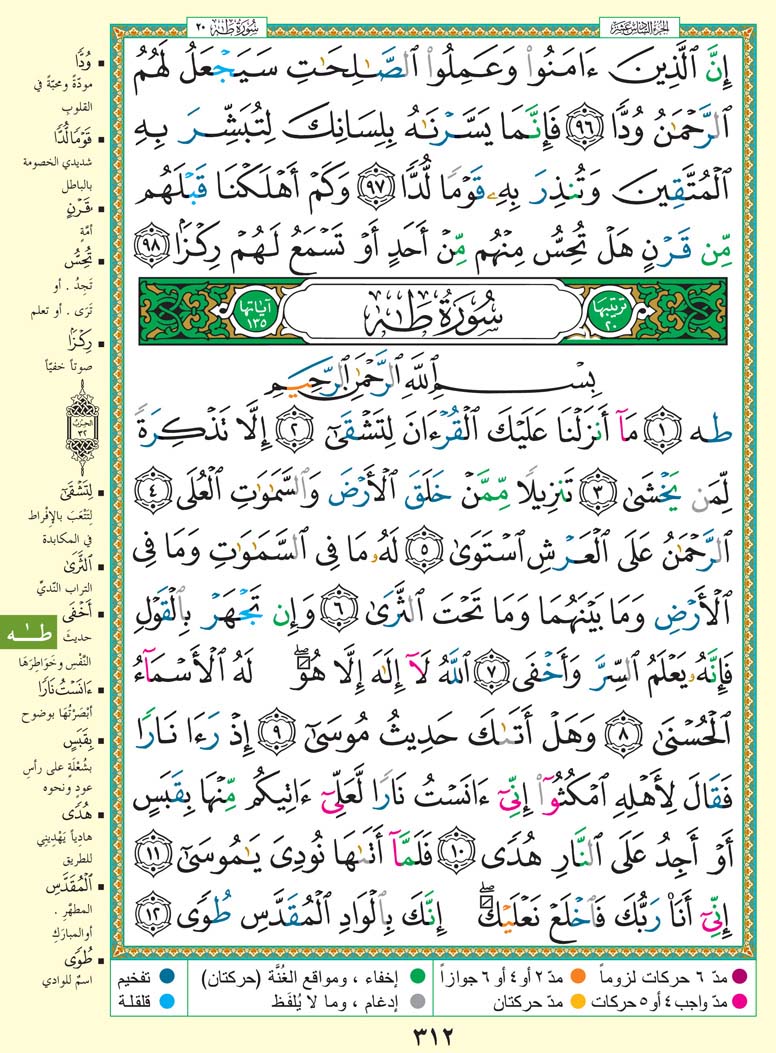 الجزء السادس عشر
سُورَةُ طه ٢٠
إِنَّ ٱلَّذِينَ ءَامَنُوا۟ وَعَمِلُوا۟ ٱلصَّـٰلِحَـٰتِ سَيَجْعَلُ لَهُمُ
ٱلرَّحْمَـٰنُ وُدًّا ٩٦ فَإِنَّمَا يَسَّرْنَـٰهُ بِلِسَانِكَ لِتُبَشِّرَ بِهِ
ٱلْمُتَّقِينَ وَتُنذِرَ بِهِۦ قَوْمًا لُّدًّا ٩٧ وَكَمْ أَهْلَكْنَا قَبْلَهُم
مِّن قَرْنٍ هَلْ تُحِسُّ مِنْهُم مِّنْ أَحَدٍ أَوْ تَسْمَعُ لَهُمْ رِكْزًۢا ٩٨
ترتيبها ٢٠ سُورَةُ طه آياتها ١٣٥
بِسْمِ ٱللَّهِ ٱلرَّحْمَـٰنِ ٱلرَّحِيمِ
طه ١ مَآ أَنزَلْنَا عَلَيْكَ ٱلْقُرْءَانَ لِتَشْقَىٰٓ ٢ إِلَّا تَذْكِرَةً
لِّمَن يَخْشَىٰ ٣ تَنزِيلًا مِّمَّنْ خَلَقَ ٱلْأَرْضَ وَٱلسَّمَـٰوَٰتِ ٱلْعُلَى ٤
ٱلرَّحْمَـٰنُ عَلَى ٱلْعَرْشِ ٱسْتَوَىٰ ٥ لَهُۥ مَا فِى ٱلسَّمَـٰوَٰتِ وَمَا فِى
ٱلْأَرْضِ وَمَا بَيْنَهُمَا وَمَا تَحْتَ ٱلثَّرَىٰ ٦ وَإِن تَجْهَرْ بِٱلْقَوْلِ
فَإِنَّهُۥ يَعْلَمُ ٱلسِّرَّ وَأَخْفَى ٧ ٱللَّهُ لَآ إِلَـٰهَ إِلَّا هُوَ ۖ لَهُ ٱلْأَسْمَآءُ
ٱلْحُسْنَىٰ ٨ وَهَلْ أَتَىٰكَ حَدِيثُ مُوسَىٰٓ ٩ إِذْ رَءَا نَارًا
فَقَالَ لِأَهْلِهِ ٱمْكُثُوٓا۟ إِنِّىٓ ءَانَسْتُ نَارًا لَّعَلِّىٓ ءَاتِيكُم مِّنْهَا بِقَبَسٍ
أَوْ أَجِدُ عَلَى ٱلنَّارِ هُدًى ١٠ فَلَمَّآ أَتَىٰهَا نُودِىَ يَـٰمُوسَىٰٓ ١١
إِنِّىٓ أَنَا۠ رَبُّكَ فَٱخْلَعْ نَعْلَيْكَ ۖ إِنَّكَ بِٱلْوَادِ ٱلْمُقَدَّسِ طُوًى ١٢
وُدًّا
مودّةً ومحبّةً في
القلوب
قَوْمًا لُّدًّا
شديدي الخصومة
بالباطل
قَرْنٍ
أمّةٍ
تُحِسُّ
تَجِدُ . أو
تَرَى . أو تعلم
رِكْزًا
صوتاً خفيّاً
الحزب
٣٢
لِتَشْقَىٰٓ
لِتَتْعَبَ بالإفْراط
في المكابدة
ٱلثَّرَىٰ
التراب النّديّ
أَخْفَى
حديثَ
النَّفْسِ وخَوَاطِرَها
طـٰه
ءَانَسْتُ نَارًا
أَبْصَرْتُها بوضوح
بِقَبَسٍ
بشُعْلَةٍ على رأسِ
عودٍ ونحوه
هُدًى
هادياً يَهْدِيني
للطريق
ٱلْمُقَدَّسِ
المطهّر .
أو المبارَكِ
طُوًى
اسمٌ للوادي
مدّ ٦ حركات لزوماً
مدّ ٢ أو ٤ أو ٦ جوازاً
إخفاء ، ومواقع الغُنَّة (حركتان)
تفخيم
مدّ واجب ٤ أو ٥ حركات
مدّ حركتان
إدغام ، وما لا يُلفَظ
قلقلة
٣١٢